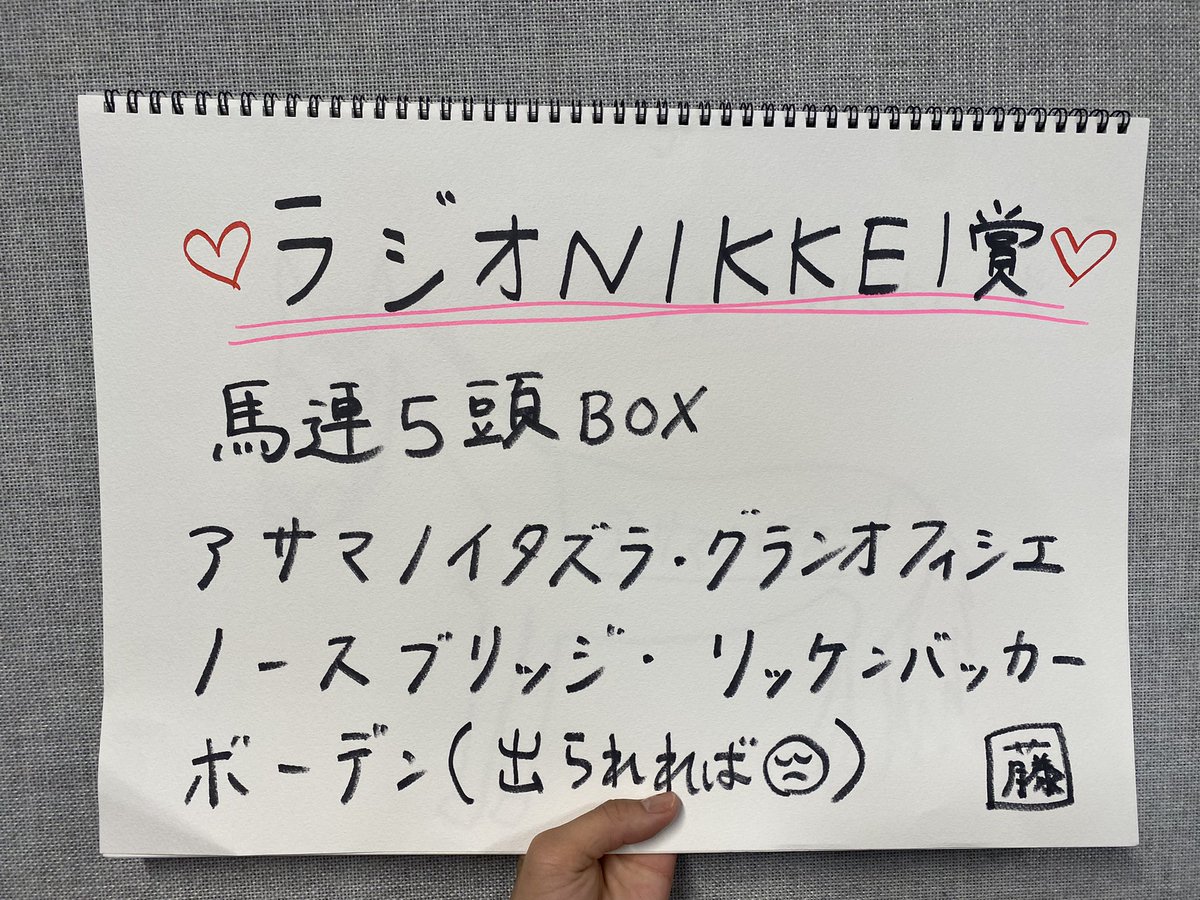 ♡ラジオNIKKEI賞♡
馬連5頭BOX
アサマノイタズラ・グランオフィシエ
ノースブリッジ・リッケンバッカー
ボーデン(出られれば😔)
藤